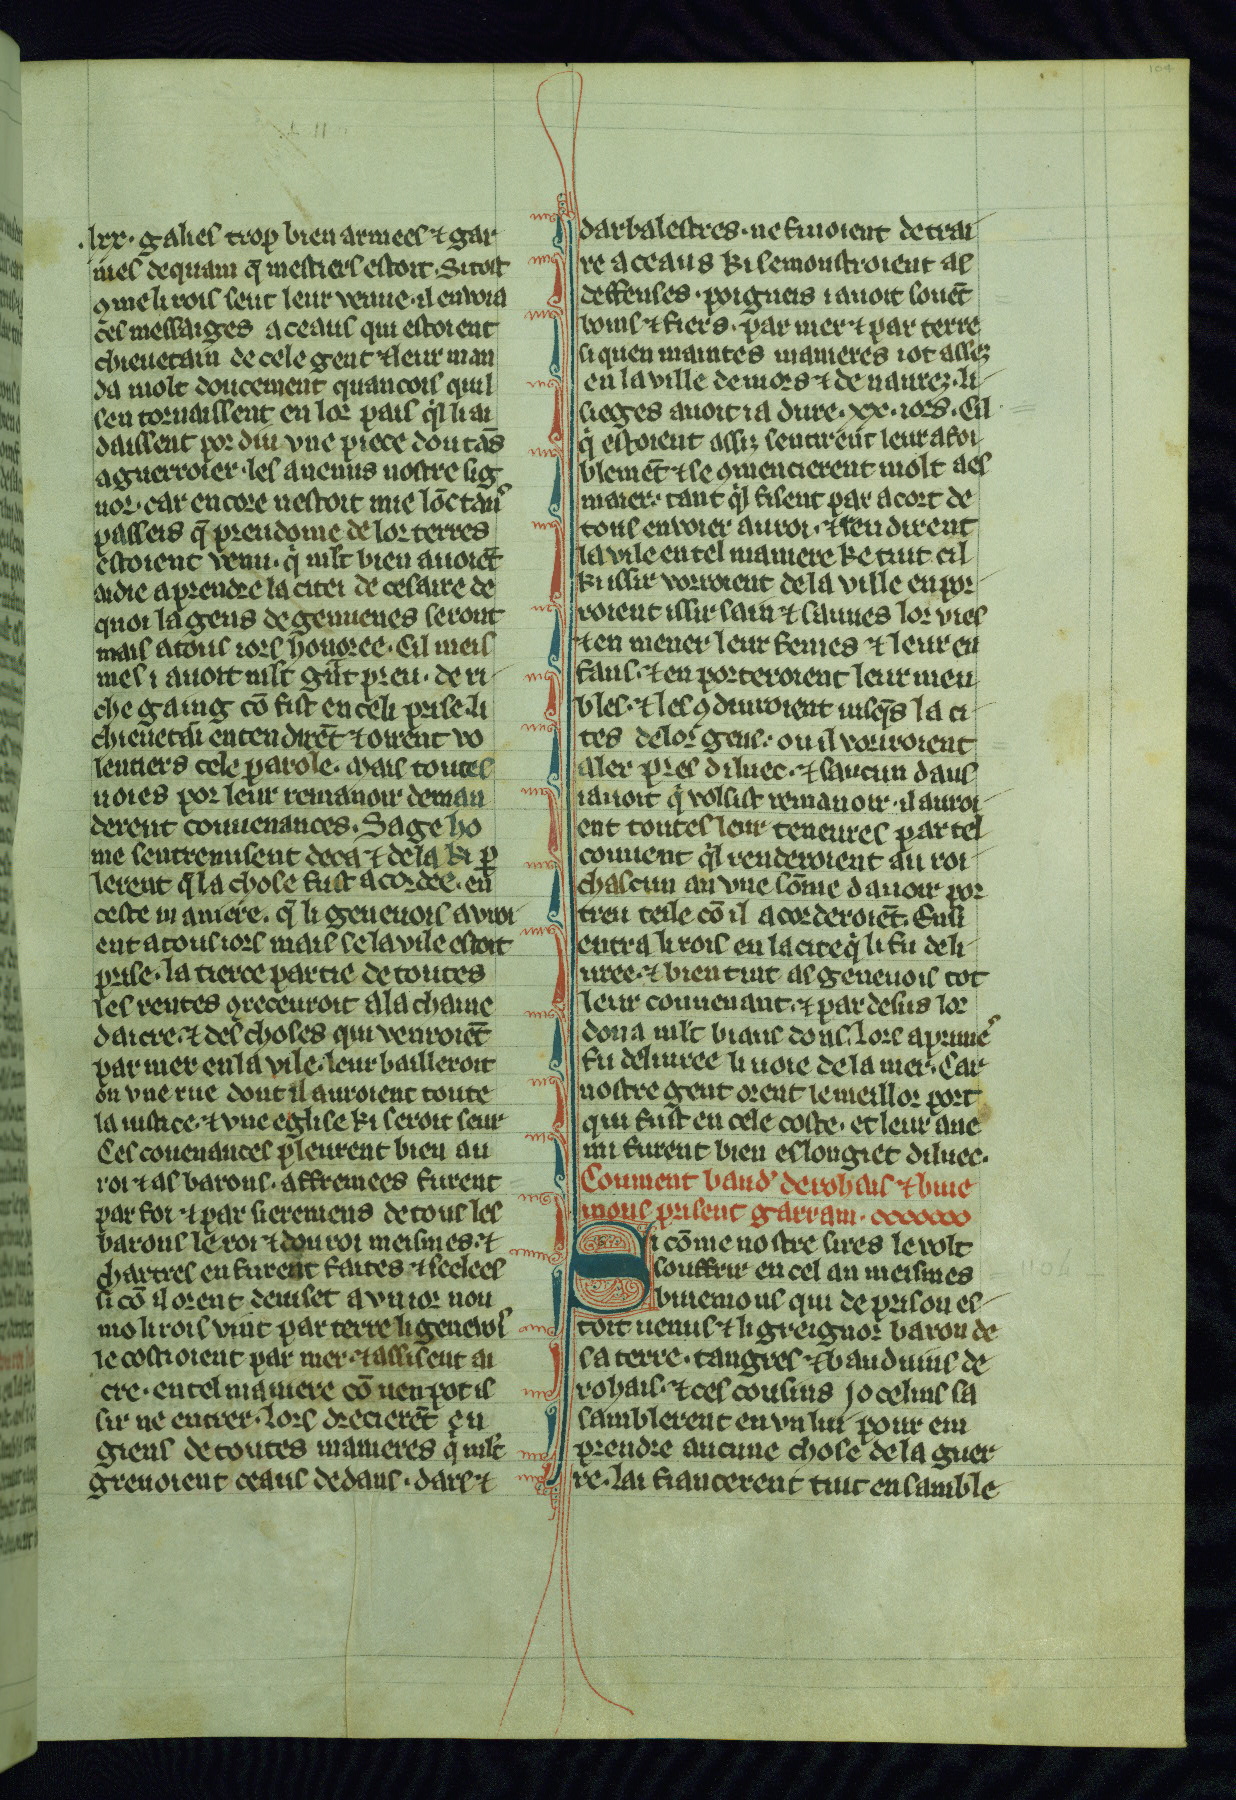 .lxx. galies trop bien armees ⁊ gar
nies dequam q̃ mestiers estoit. Si tost
ꝯme li rois seut leur venue. il envoia
ces messaiges a ceaus qui estoient
chieuetain de cele gent ⁊ leur man
da molt doucement quancois quil
sen tornaissent en lor pais q̓l li ai
daissent por diu vne piece dou tãs
a guerroier. les anemis nostre sig
nor. car encore nestoit mie lõc tans
passeis q̃ preudome de lor terres
estoient venu. q̓ mlt bien auoiẽt
aidie a prendre la citei de cesaire de
quoi la gens de genueues seront
mais a tous iors honoree. Cil meis
mes i auoit mlt grãt preu. de ri
che gaing cõ fist en celi prise. li
chieuetai entendirẽt ⁊ oirent vo
lentiers cele parole. Mais toutes
uoies por leur remanoir deman
derent couuenances. Sage ho
me sentremisent deca ⁊ de la ki ꝑ
lerent q̃ la chose fust acordee. en
ceste maniere. q̃ li geneuois auroi
ent a tous iors mais se la vile estoit
prise. la tierce partie de toutes
les rentes ꝯ receuroit a la chaine
dacre. ⁊ des choses qui venroiẽt
par mer en la vile. leur bailleroit
on vne rue dont il auroient toute
la iustice. ⁊ vne eglise ki seroit leur
Ces couenances pleurent bien au
roi ⁊ as barons. affremees furent
par foi ⁊ par sieremens de tous les
barons le roi ⁊ dou roi meismes. ⁊
chartres en furent faites ⁊ seelees
si cõ il orent deuiset a vn ior nou
mo li rois vint par terre li geneuois
ie costioient par mer. ⁊ assisent ai
cre. en tel maniere cõ nen pot is
sir ne entrer. lors drecierẽt en
giens de toutes manieres q̓ mlt
greuoient ceaus dedans. dars ⁊
darbalestres. ne finoient de trai
re a ceaus ki se monstroient as
deffenses. poigneis i auoit souẽt
bons ⁊ fiers. par mer ⁊ par terre
si quen maintes manieres iot assez
en la ville de mors ⁊ de naurez. li
sieges auoit ia dure .xx. iors. Cil
q̓ estoient assiz sentirent leur afoi
blemẽt ⁊ se ꝯmencierent molt a es
maier. tant q̓l fisent par acort de
tous enuoier au roi. ⁊ rendirent
la vile en tel maniere ke tuit cil
ki issir vorroient de la ville en por
roient issir sain ⁊ sauues lor vies
⁊ en mener leur femes ⁊ leur en
fans. ⁊ en porteroient leur meu
bles. ⁊ les ꝯduiroient iusq̃s la ci
tes de lor gens. ou il vorroient
aler pres diluec. ⁊ saucun daus
i auoit q̓ volsist remanoir. il auroi
ent toutes leur teneures par tel
couuent q̓l renderoient au roi
chascun an vne sõme dauoir por
treu teile cõ il acorderoiẽt. Ensi
entra li rois en la cite q̓ li fu deli
uree. ⁊ bien tint as geneuois tot
leur couuenant. ⁊ par desus lor
dona mlt biaus dons. lors a primes
fu deliuree li uoie de la mer. Car
nostre gent orent le meillor port
qui fust en cele coste. et leur ane
mi furent bien eslongiet diluec.
Coument baud' de rohais ⁊ buie
mons prisent garram.
Si cõme nostre sires le volt
souffrir en cel an meismes
buiemons qui de prison es
toit uenus ⁊ li greignor baron de
sa terre. tangres ⁊ bauduins de
rohais. ⁊ ces cousins jocelins sa
samblerent en vn liu pour em
prendre aucune chose de la guer
re. lai fiancerent tuit ensamble
104